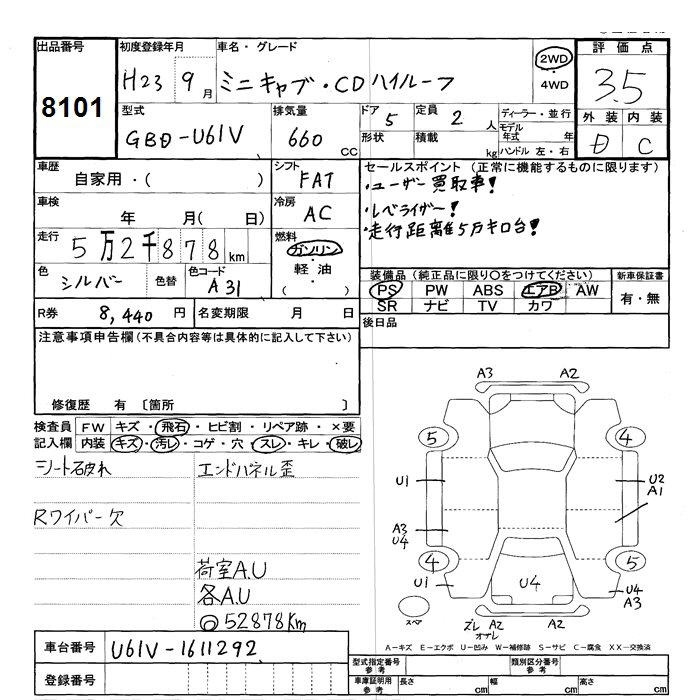 出品番号 初度登録年月 車名・グレード 評価点
8101 H23 9月 ミニキャブ・CDハイルーフ 2WD・4WD 3.5
型式 排気量 ドア 5 定員 2人 ディーラー・並行 外装 内装
GBD-U61V 660cc 形状 積載 kg モデル年式 年 D C
ハンドル 左・右
車歴 シフト セールスポイント (正常に機能するものに限ります)
自家用・( ) FAT ・ユーザー買取車!
車検 冷房 ・レベライザー!
年 月( 日) AC ・走行距離5万キロ台!
走行 燃料
5万2千878km ガソリン・軽油・( )
色 シルバー 色替 色コード A31
装備品 (純正品に限り○をつけてください) 新車保証書
PS PW ABS エアB AW 有・無
SR ナビ TV カワ
R券 8,440円 名変期限 月 日 後日品
注意事項申告欄(不具合内容等は具体的に記入して下さい)
修復歴 有 〔箇所 〕
検査員 FW キズ・飛石・ヒビ割・リペア跡・×要
記入欄 内装 キズ・汚レ・コゲ・穴・スレ・キレ・破レ
シート破れ エンドパネル歪
Rワイパー欠
荷室A.U
各A.U
◎52878Km
A3 A2
5 4
U1 U2
A1
A3
U4
4 5
U1 U4 U4
A3
スペア ズレ A2 A2
オサレ
A-キズ E-エクボ U-凹み W-補修跡 S-サビ C-腐食 XX-交換済
車台番号 U61V-1611292
登録番号
型式指定番号 参考 類別区分番号 参考
車庫証明用 参考 長さ cm 幅 cm 高さ cm